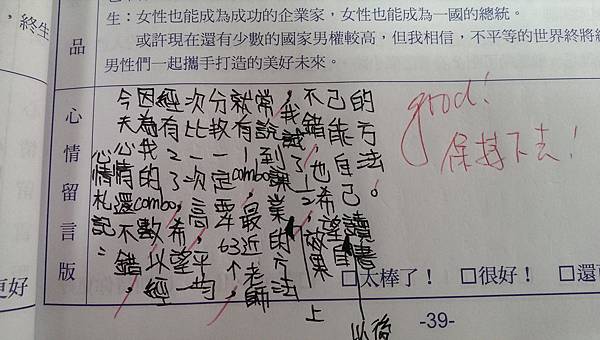 終生
生：女性也能成為成功的企業家，女性也能成為一國的總統。
品
或許現在還有少數的國家男權較高，但我相信，不平等的世界終將
男性們一起攜手打造的美好未來。
心情留言版
心情札記：
今天心情還不錯，
因為我的combo數以經
經有2了，希望平均
次比一次高，
分數一定要63↑，
就有1combo，最近老師
常說到讓業的方法
我試了1、2，效果
不錯，也希望自
己能自己讀書
的方法。
以後
上
good!
保持下去！
更好
□太棒了！ □很好！ □還
-39-